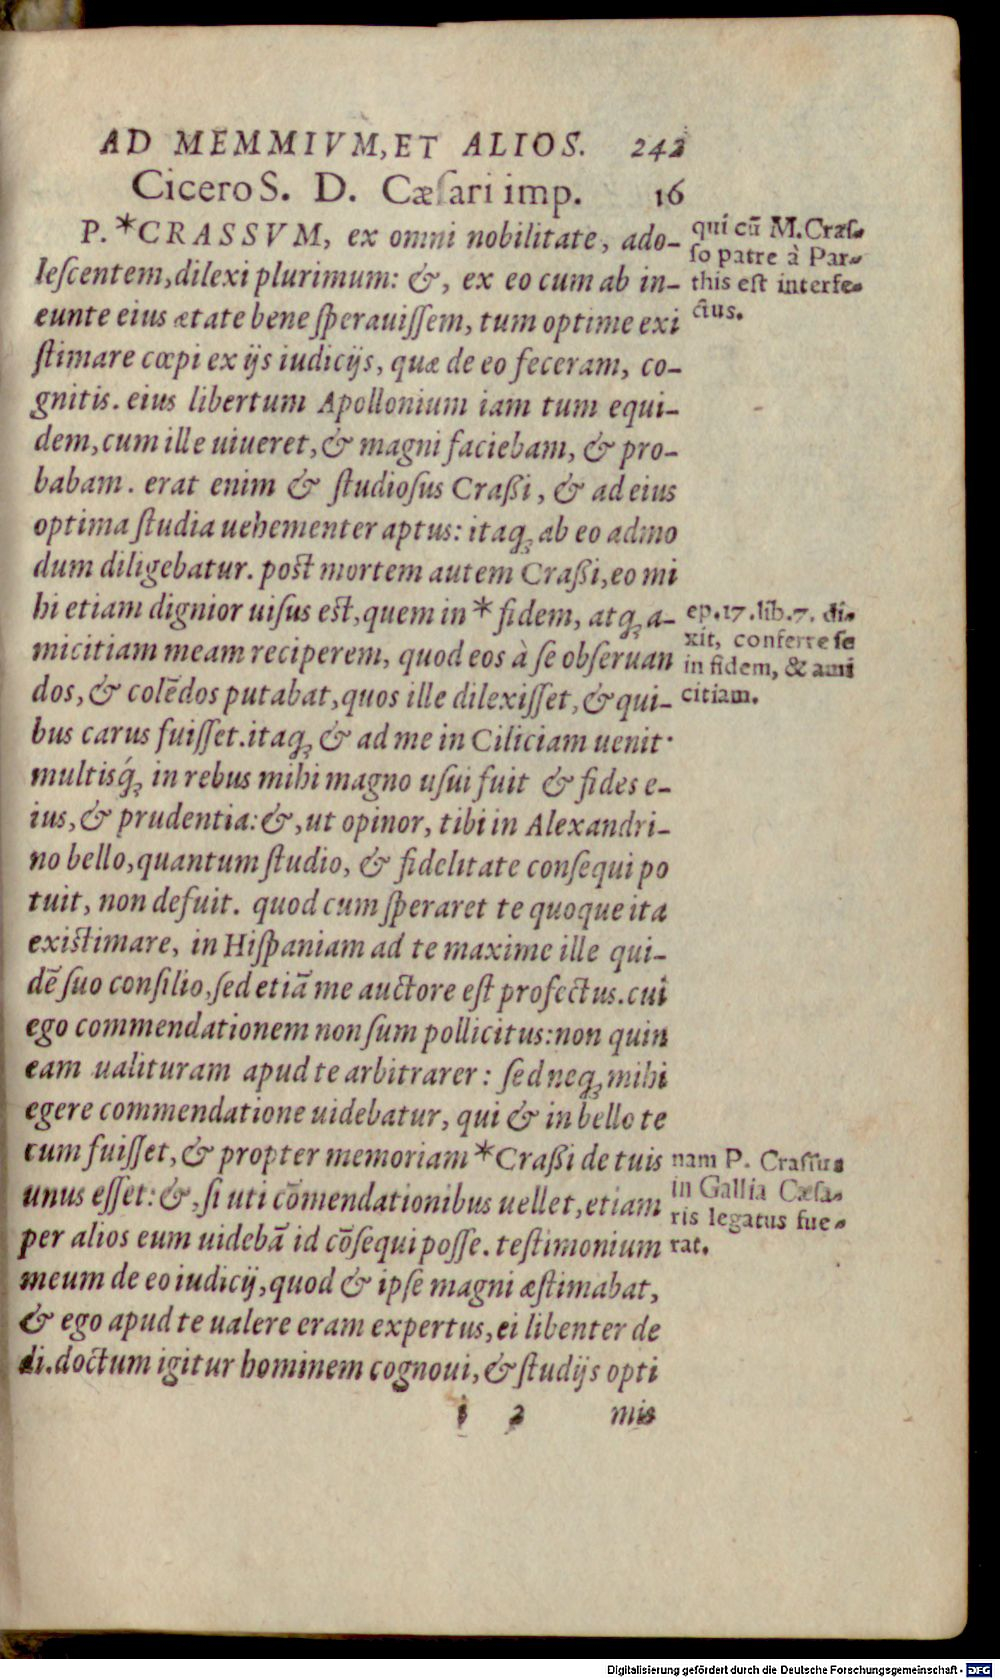 AD MEMMIVM, ET ALIOS. 242
Cicero S. D. Cæsari imp. 16
P. *CRASSVM, ex omni nobilitate, ado-
lescentem, dilexi plurimum: &, ex eo cum ab in-
eunte eius ætate bene sperauissem, tum optime exi
stimare cœpi ex ijs iudicijs, quæ de eo feceram, co-
gnitis. eius libertum Apollonium iam tum equi-
dem, cum ille uiueret, & magni faciebam, & pro-
babam. erat enim & studiosus Craßi, & ad eius
optima studia uehementer aptus: itaq; ab eo admo
dum diligebatur. post mortem autem Craßi, eo mi
hi etiam dignior uisus est, quem in * fidem, atq; a-
micitiam meam reciperem, quod eos à se obseruan
dos, & colẽdos putabat, quos ille dilexisset, & qui-
bus carus fuisset. itaq; & ad me in Ciliciam uenit.
multisq́; in rebus mihi magno usui fuit & fides e-
ius, & prudentia: &, ut opinor, tibi in Alexandri-
no bello, quantum studio, & fidelitate consequi po
tuit, non defuit. quod cum speraret te quoque ita
existimare, in Hispaniam ad te maxime ille qui-
dẽ suo consilio, sed etiã me auctore est profectus. cui
ego commendationem non sum pollicitus: non quin
eam ualituram apud te arbitrarer: sed neq; mihi
egere commendatione uidebatur, qui & in bello te
cum fuisset, & propter memoriam *Craßi de tuis
unus esset: &, si uti cõmendationibus uellet, etiam
per alios eum uidebã id cõsequi posse. testimonium
meum de eo iudicij, quod & ipse magni æstimabat,
& ego apud te ualere eram expertus, ei libenter de
di. doctum igitur hominem cognoui, & studijs opti
i 2 mis
qui cũ M. Cras-
so patre à Par-
this est interfe-
ctus.
ep. 17. lib. 7. di-
xit, conferre se
in fidem, & ami
citiam.
nam P. Crassus
in Gallia Cæsa-
ris legatus fue-
rat.
Digitalisierung gefördert durch die Deutsche Forschungsgemeinschaft - DFG